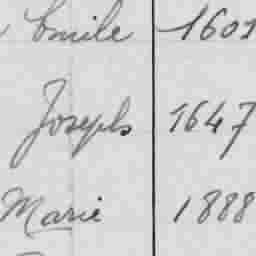 Emile 1601
Joseph 1647
Marie 1888